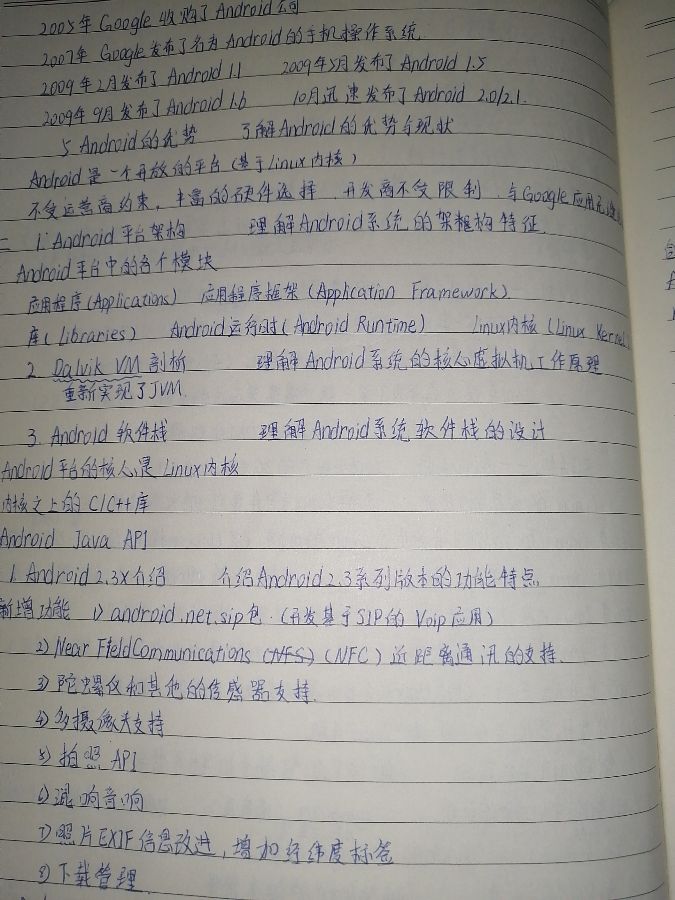 2005年 Google 收购了 Android 公司
2007年 Google 发布了名为 Android 的手机操作系统.
2009年2月发布了 Android 1.1 2009年5月发布了 Android 1.5
2009年9月发布了 Android 1.6 10月迅速发布了 Android 2.0/2.1.
5 Android的优势 了解Android的优势与现状
Android是一个开放的平台(基于Linux内核)
不受运营商约束, 丰富的硬件选择, 开发商不受限制, 与Google应用无缝
二 1. Android平台架构 理解Android系统的架框构特征.
Android平台中的各个模块
应用程序(Applications) 应用程序框架(Application Framework)
库(Libraries) Android运行时(Android Runtime) Linux内核(Linux Kernel)
2. Dalvik VM剖析 理解Android系统的核心虚拟机工作原理
重新实现了JVM.
3. Android 软件栈 理解Android系统软件栈的设计
Android平台的核心是Linux内核
内核之上的 C/C++库
Android Java API
1. Android 2.3X介绍 介绍Android 2.3系列版本的功能特点
新增功能 1) android.net.sip包.(开发基于SIP的Voip应用)
2) Near FieldCommunications (NFS) (NFC) 近距离通讯的支持.
3) 陀螺仪和其他的传感器支持.
4) 多摄像头支持
5) 拍照 API
6) 混响音响
7) 照片EXIF信息改进, 增加经纬度标签
8) 下载管理.